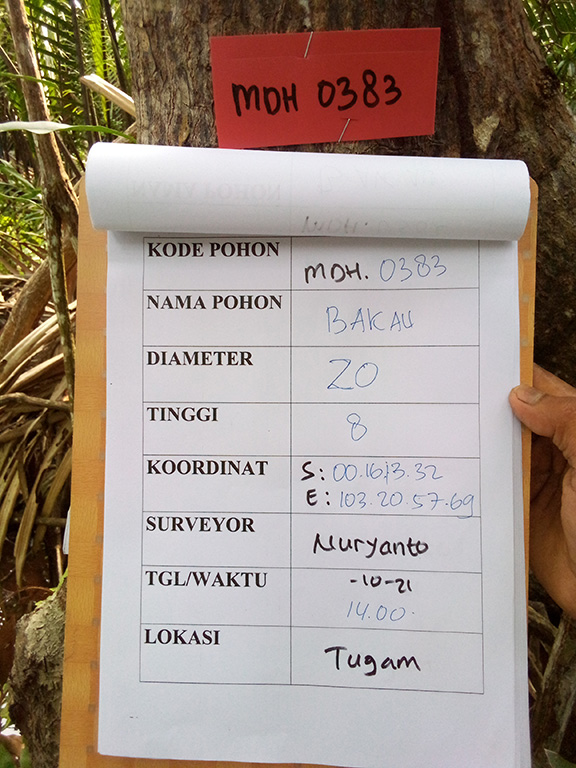 MDH 0383
KODE POHON MDH. 0383
NAMA POHON BAKAU
DIAMETER 20
TINGGI 8
KOORDINAT S: 00.16.13.32
E: 103.20.57.69
SURVEYOR Nuryanto
TGL/WAKTU -10-21
14.00.
LOKASI Tugam